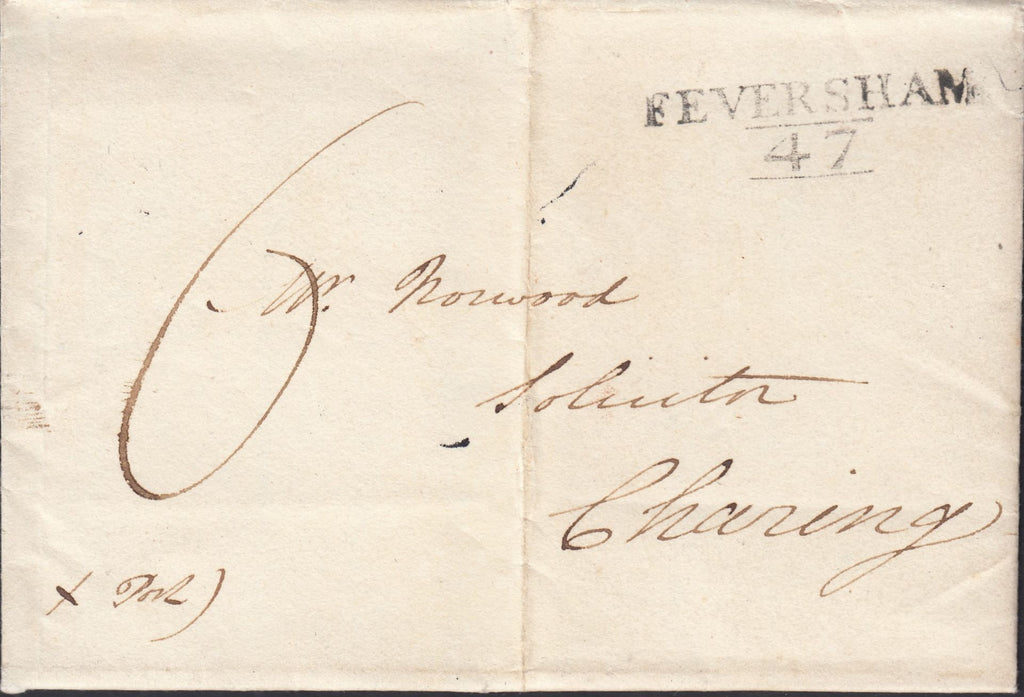 FEVERSHAM
47
6
Mr. Norwood
Solicitor
Charing
Post)